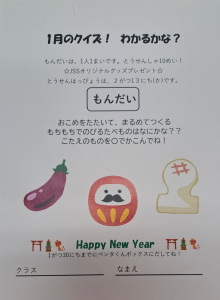 1月のクイズ! わかるかな?
もんだいは、1人1まいです。とうせんしゃ10めい!
☆JSSオリジナルグッズプレゼント☆
とうせんはっぴょうは、2がつ13にち(か)です。
もんだい
おこめをたたいて、まるめてつくる
もちもちでのびるたべものはなにかな??
こたえのものを○でかこんでね!
Happy New Year
1がつ30にちまでにペンタくんボックスにだしてね!
クラス
なまえ